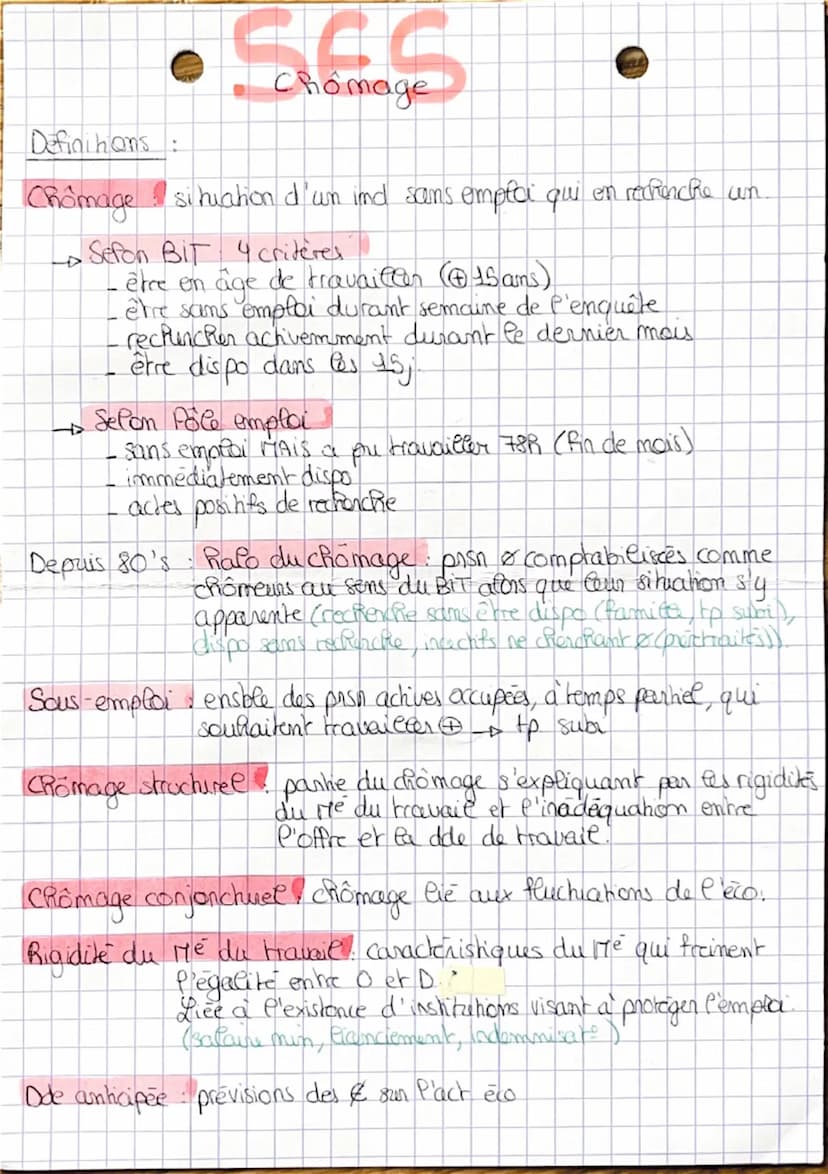 SES
Chômage
Définitions :
Chômage : situation d'un ind sans emploi qui en recherche un.
→ Selon BIT : 4 critères
- être en âge de travailler (⊕ 15 ans)
- être sans emploi durant semaine de l'enquête
- rechercher activemment durant le dernier mois
- être dispo dans les 15j.
→ Selon Pôle emploi
- sans emploi MAIS a pu travailler 78h (fin de mois)
- immédiatement dispo
- actes positifs de recherche
Depuis 80's : Halo du chômage : prsn ø comptabilisées comme
chômeurs au sens du BIT alors que leur situation s'y
apparente (recherche sans être dispo (famille, tp subi),
dispo sans recherche, inactifs ne cherchant ø (prétraités)).
Sous-emploi : ensble des prsn actives occupées, à temps partiel, qui
souhaitent travailler ⊕ → tp subi
Chômage structurel : partie du chômage s'expliquant par les rigidités
du Mé du travail et l'inadéquation entre
l'offre et la dde de travail.
Chômage conjonctuel : chômage lié aux fluctuations de l'éco.
Rigidité du Mé du travail : caractéristiques du Mé qui freinent
l'égalité entre O et D.
Liée à l'existence d'institutions visant à protéger l'emploi.
(salaire min, licenciement, indemnisat°)
Dde anticipée : prévisions des € sur l'act éco